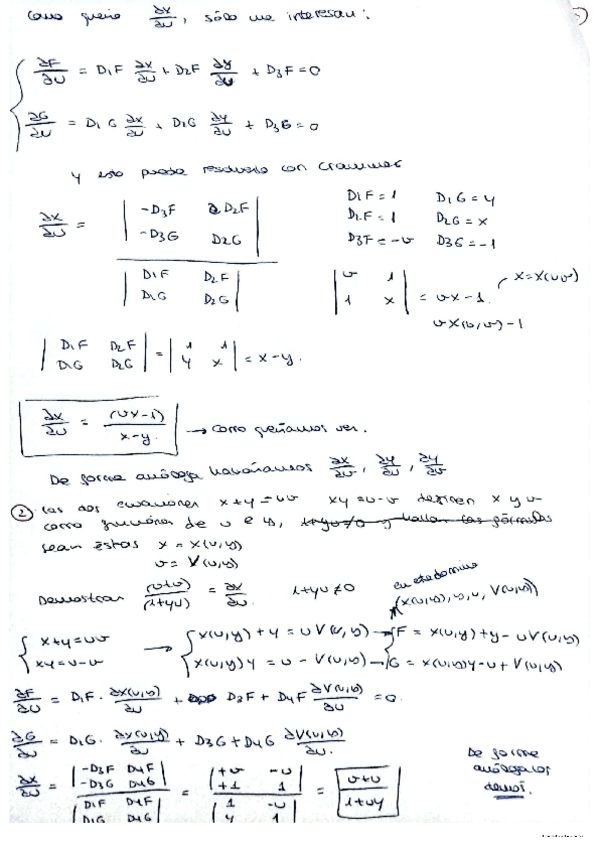 Como quería ∂x/∂u, sólo me interesan:
∂F/∂u = D₁F ∂x/∂u + D₂F ∂y/∂u + D₃F = 0
∂G/∂u = D₁G ∂x/∂u + D₂G ∂y/∂u + D₃G = 0
y esto puedo resolverlo con Crammer
∂x/∂u = | -D₃F D₂F ; -D₃G D₂G | / | D₁F D₂F ; D₁G D₂G |
D₁F = 1 D₁G = y
D₂F = 1 D₂G = x
D₃F = -v D₃G = -1
| v 1 ; 1 x | = vx - 1. x = x(u,v)
v x(u,v) - 1
| D₁F D₂F ; D₁G D₂G | = | 1 1 ; y x | = x - y.
∂x/∂u = (vx-1) / x-y. → como queríamos ver.
De forma análoga hallaríamos ∂x/∂v, ∂y/∂u, ∂y/∂v
② Las dos ecuaciones x+y = uv xy = u-v definen x y v
como funciones de u e y,
sean éstas x = x(u,y)
v = V(u,y)
Demostrar (u+v)/(1+yu) = ∂x/∂u. 1+yu ≠ 0 en este dominio
(x(u,y), y, u, V(u,y))
{ x+y = uv → { x(u,y) + y = u V(u,y) → { F = x(u,y) + y - u V(u,y)
xy = u-v x(u,y) y = u - V(u,y) → G = x(u,y)y - u + V(u,y)
∂F/∂u = D₁F · ∂x(u,y)/∂u + D₃F + D₄F ∂V(u,y)/∂u = 0.
∂G/∂u = D₁G · ∂x(u,y)/∂u + D₃G + D₄G ∂V(u,y)/∂u.
∂x/∂u = | -D₃F D₄F ; -D₃G D₄G | / | D₁F D₄F ; D₁G D₄G | = | +v -u ; +1 1 | / | 1 -u ; y 1 | = v+u / 1+uy
De forma
análoga los
demás.